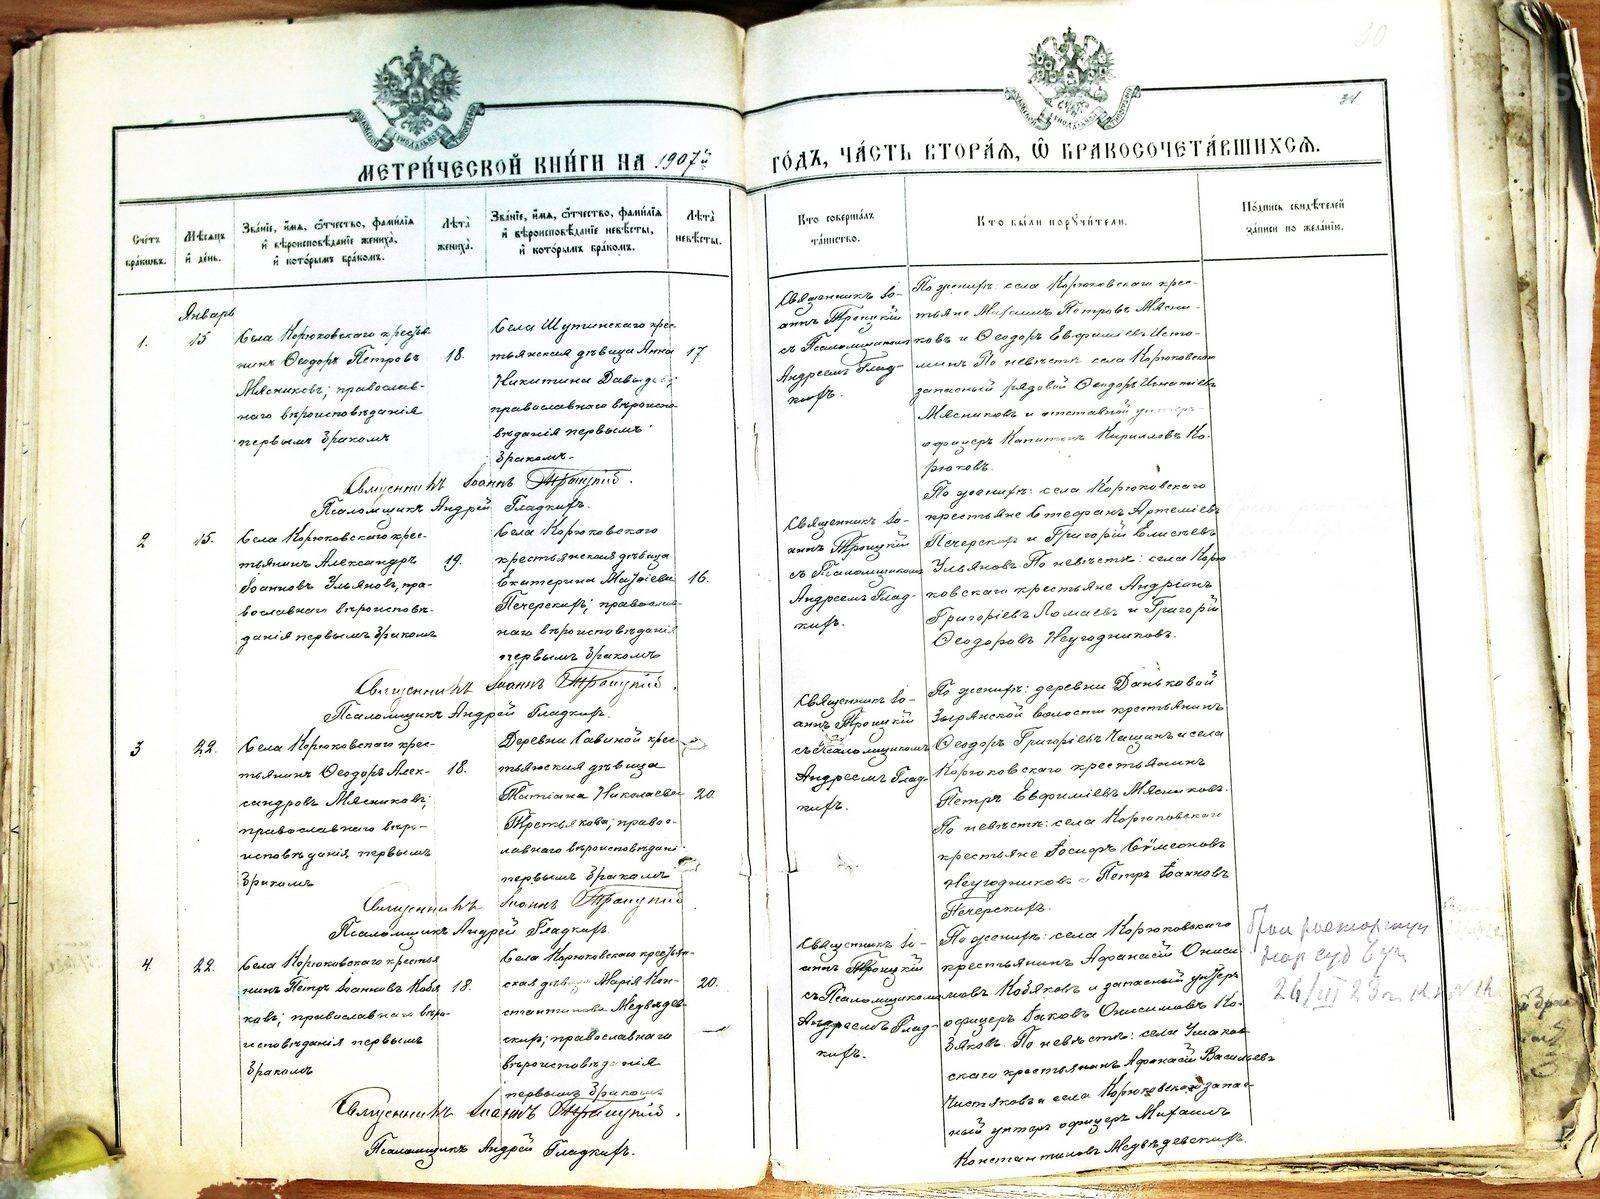 МЕТРИ́ЧЕСКОЙ КНИ́ГИ НА 1907й
ГО́ДЪ, ЧА́СТЬ ВТОРА́Я, Ѿ БРАКОСОЧЕТА́ВШИХСЯ.
30
31
Сче́тъ бра́ковъ.
Мѣ́сяцъ и́ де́нь.
Зва́ніе, и́мя, ѻ́тчество, фами́лія и́ вѣроисповѣ́даніе жениха̀, и́ кото́рымъ бра́комъ.
Лѣ́та жениха̀.
Зва́ніе, и́мя, ѻ́тчество, фами́лія и́ вѣроисповѣ́даніе невѣ́сты, и́ кото́рымъ бра́комъ.
Лѣ́та невѣ́сты.
Кто̀ соверша́лъ та́инство.
Кто̀ бы́ли поручи́тели.
По́дпись свидѣ́телей за́писи по жела́нію.
Январь
1.
15
Села Корюковскаго кресть-
янинъ Ѳеодоръ Петровъ
Мясниковъ; православ-
наго вѣроисповѣданія
первымъ бракомъ
18.
Села Шутинскаго крес-
тьянская дѣвица Анна
Никитина Давыдова;
православнаго вѣроиспо-
вѣданія первымъ
бракомъ.
17
Священникъ Іо-
аннъ Троицкій
съ Псаломщикомъ
Андреемъ Глад-
кихъ.
По женихѣ: села Корюковскаго крес-
тьяне Михаилъ Петровъ Мясни-
ковъ и Ѳеодоръ Евфиміевъ Исто-
минъ По невѣстѣ: села Корюковскаго
запасный рядовой Ѳеодоръ Игнатіевъ
Мясниковъ и отставной унтеръ-
офицеръ Капитонъ Кирилловъ Ко-
рюковъ.
Священникъ Іоаннъ Троицкій.
Псаломщикъ Андрей Гладкихъ.
2
15.
Села Корюковскаго крес-
тьянинъ Александръ
Іоанновъ Ульяновъ, пра-
вославнаго вѣроисповѣ-
данія первымъ бракомъ
19.
Села Корюковскаго
крестьянская дѣвица
Екатерина Матѳіева
Печерскихъ; православ-
наго вѣроисповѣданія
первымъ бракомъ
16.
Священникъ Іо-
аннъ Троицкій
съ Псаломщикомъ
Андреемъ Глад-
кихъ.
По женихѣ: села Корюковскаго
крестьяне Стефанъ Артеміевъ
Печерскихъ и Григорій Елисѣевъ
Ульяновъ. По невѣстѣ: села Корю-
ковскаго крестьяне Андріанъ
Григоріевъ Ломаевъ и Григорій
Ѳеодоровъ Неугодниковъ.
Священникъ Іоаннъ Троицкій.
Псаломщикъ Андрей Гладкихъ.
3
22.
Села Корюковскаго крес-
тьянинъ Ѳеодоръ Алек-
сандровъ Мясниковъ;
православнаго вѣро-
исповѣданія первымъ
бракомъ
18.
Деревни Савиной крес-
тьянская дѣвица
Татіана Николаева
Третьякова; право-
славнаго вѣроисповѣданія
первымъ бракомъ
20.
Священникъ Іо-
аннъ Троицкій
съ Псаломщикомъ
Андреемъ Глад-
кихъ.
По женихѣ: деревни Даньковой
Зырянской волости крестьянинъ
Ѳеодоръ Григоріевъ Чащинъ и села
Корюковскаго крестьянинъ
Петръ Евфиміевъ Мясниковъ.
По невѣстѣ: села Корюковскаго
крестьяне Іосифъ Сѵмеоновъ
Неугодниковъ и Петръ Іоанновъ
Печерскихъ.
Священникъ Іоаннъ Троицкій
Псаломщикъ Андрей Гладкихъ
4.
22.
Села Корюковскаго крестья-
нинъ Петръ Іоанновъ Кобя-
ковъ; православнаго вѣро-
исповѣданія первымъ
бракомъ
18.
Села Корюковскаго крестьян-
ская дѣвица Марія Кон-
стантинова Медвѣдев-
скихъ; православнаго
вѣроисповѣданія
первымъ бракомъ
20.
Священникъ Іо-
аннъ Троицкій
съ Псаломщикомъ
Андреемъ Глад-
кихъ.
По женихѣ: села Корюковскаго
крестьянинъ Аѳанасій Ониси-
мовъ Кобяковъ и запасный унтеръ
офицеръ Іаковъ Онисимовъ Ко-
бяковъ. По невѣстѣ: села Ушаков-
скаго крестьянинъ Аѳанасій Васильевъ
Чистяковъ и села Корюковскаго запас-
ный унтеръ офицеръ Михаилъ
Константиновъ Медвѣдевскихъ.
Брак расторгнут
нар суд
26/III 23 г.
Священникъ Іоаннъ Троицкій.
Псаломщикъ Андрей Гладкихъ.